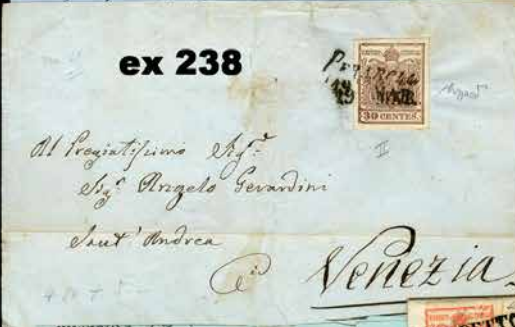 ex 238
MAR.
30 CENTES.
II
Al Pregiatissimo Sigr
Sigr Angelo Gerardini
Sant' Andrea
Venezia